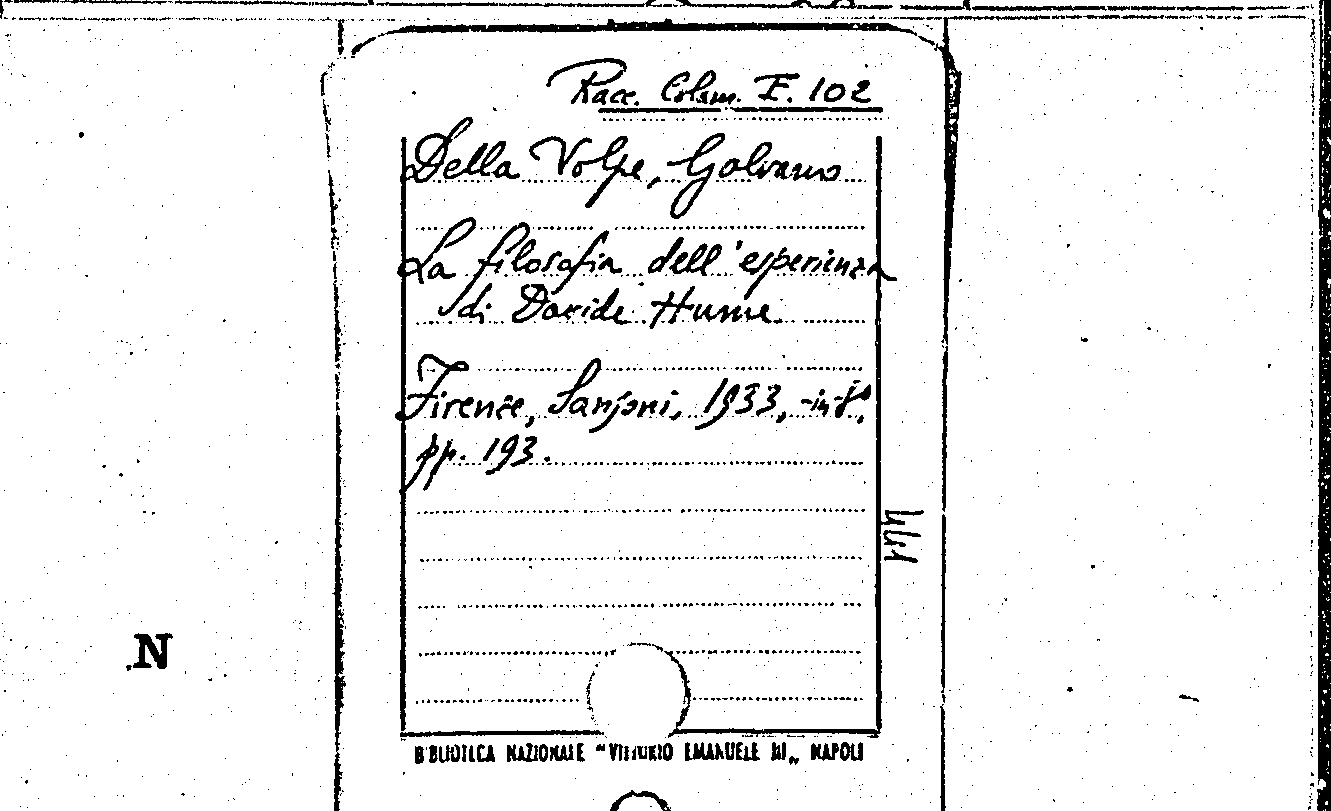 Racc. Colam. F. 102
Della Volpe, Galvano
La filosofia dell'esperienza
di Davide Hume
Firenze, Sansoni, 1933, in-8º,
pp. 193.
441
N
BIBLIOTECA NAZIONALE "VITTORIO EMANUELE III„ NAPOLI